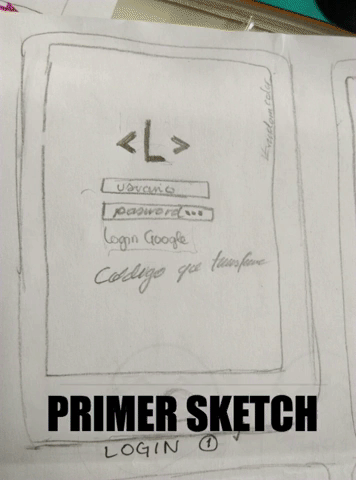 <L>
usuario
pasword...
Login Google
Codigo que transforma
PRIMER SKETCH
LOGIN 1